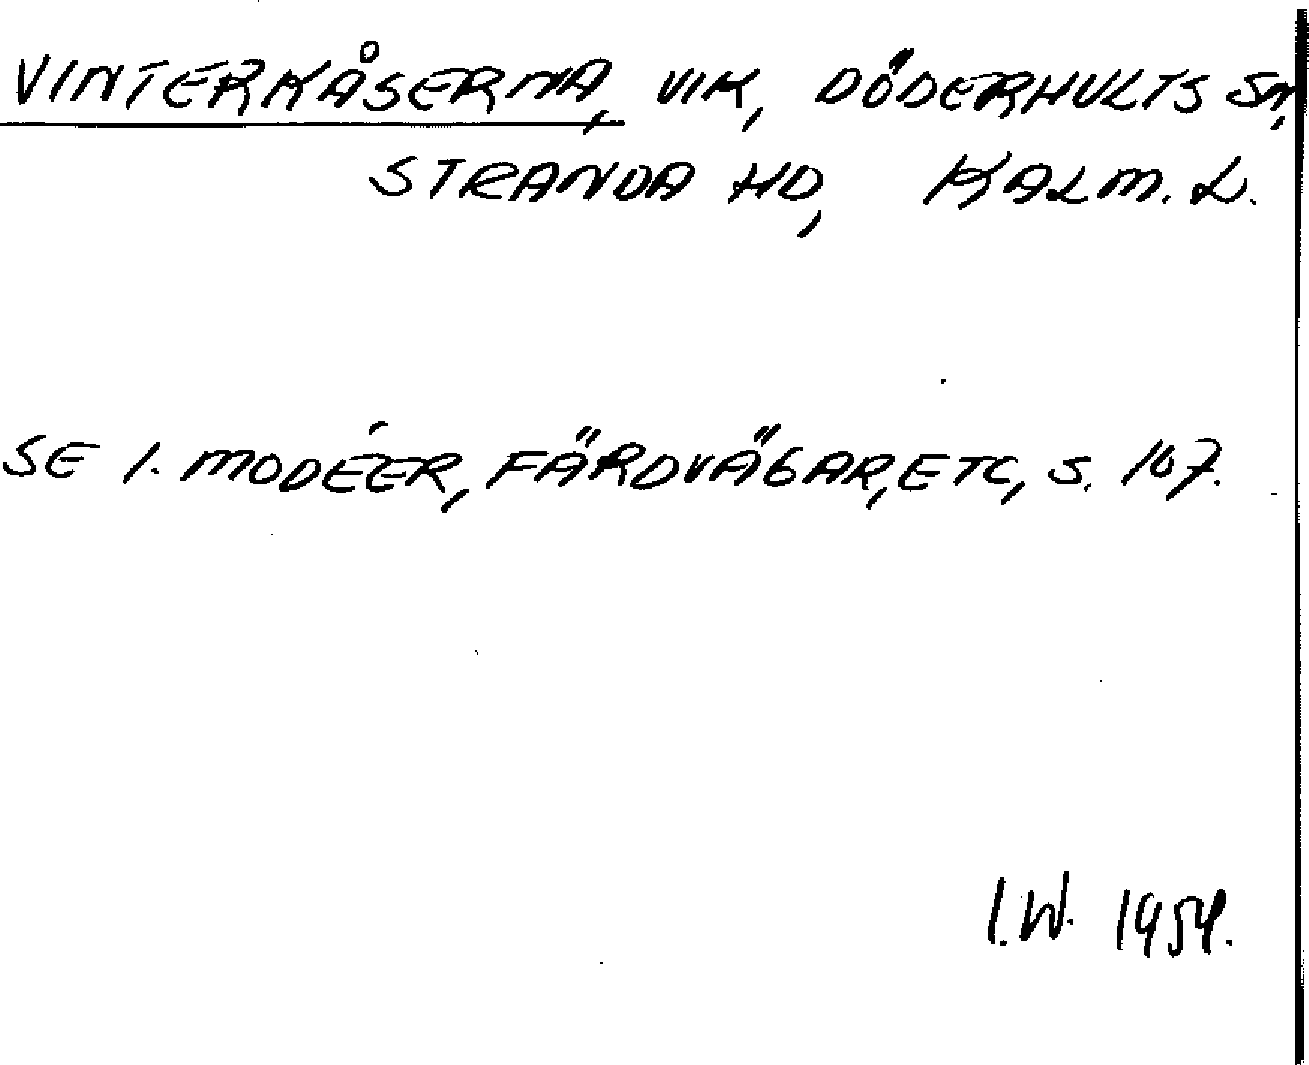 VINTERKÅSERNA, VIK, DÖDERHULTS SN,
STRANDA HD, KALM. L.
SE I. MODÉER, FÄRDVÄGAR, ETC, S. 107.
I.W. 1954.